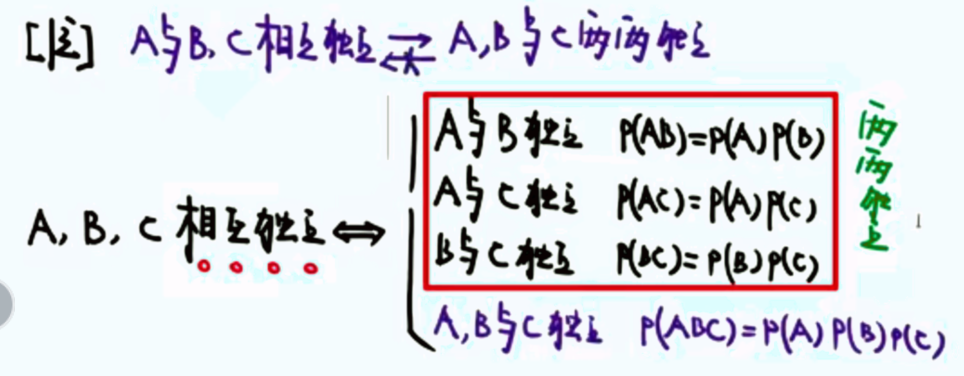 [注] A与B,C相互独立⇄A,B与C两两独立
A与B独立 P(AB)=P(A)P(B)
A与C独立 P(AC)=P(A)P(C)
A,B,C相互独立⇔
B与C独立 P(BC)=P(B)P(C)
两两独立
A,B与C独立 P(ABC)=P(A)P(B)P(C)